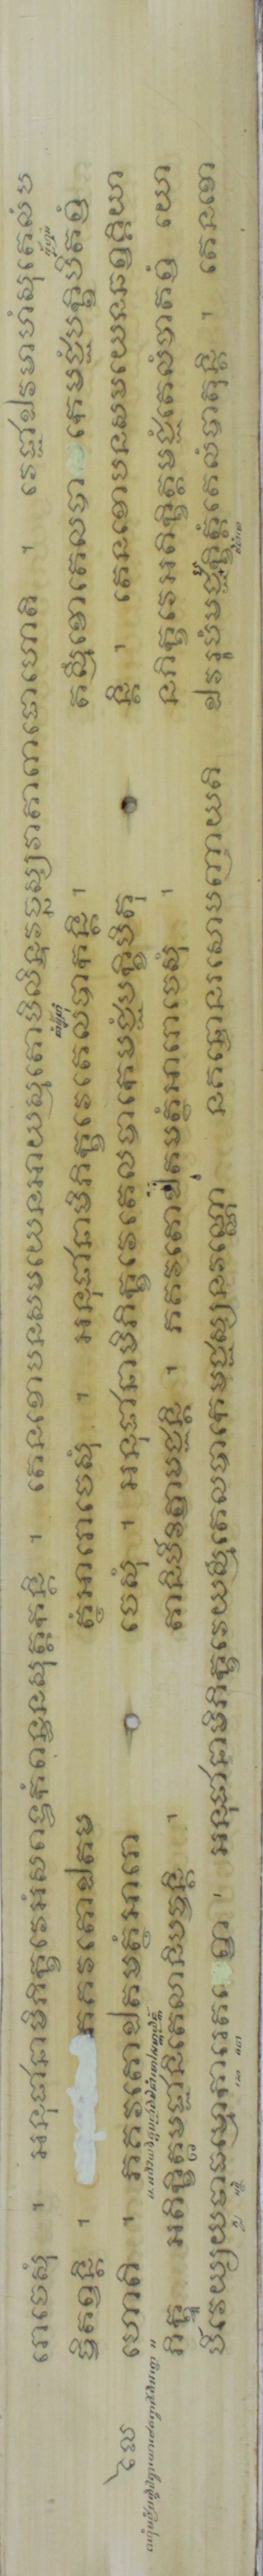 រោចេសុំ ។ អនុជានាមិភិក្ខវេអំសពន្ធកំពន្ធនសុត្តកន្តិ ។ តេនខោបនសមយេនអាយស្មតោបិលិន្ទវច្ឆស្សវាតាពាធោហោតិ ។ វេជ្ជាឯវមាហំសុតេលំប
ចិតព្វន្តិ ។ ភគវតោឯតមត្ថំអារោចេសុំ ។ អនុជានាមិភិក្ខវេតេលំបាកន្តិ ។ តស្មឹខោតេលបាកេមជ្ជំបក្ខិបិតព្វំ
ហោតិ ។ ភគវតោឯតមត្ថំអារោចេសុំ ។ អនុជានាមិភិក្ខវេតេលបាកេមជ្ជំបក្ខិបិតុន្តិ ។ តេនខោបនសមយេនឆព្វគ្គិយា
ភិក្ខូ អតិក្ខិត្តមជ្ជានិតេលានិបចន្តិ ។ តានិបិវិត្វាមជ្ជន្តិ ។ ភគវតោឯតមត្ថំអារោចេសុំ ។ នភិក្ខវេអតិក្ខិត្តមជ្ជំតេលំបាតព្វំ យោ
បិវេយ្យយថាធម្មោការេតព្វោ ។ អនុជានាមិភិក្ខវេយស្មឹតេលបាកេមជ្ជស្សនវណ្ណោ នគន្ធោនរសោបញ្ញាយតិ ឯវរូបំមជ្ជក្ខិត្តំតេលំបាតុន្តិ ។ តេនខោ